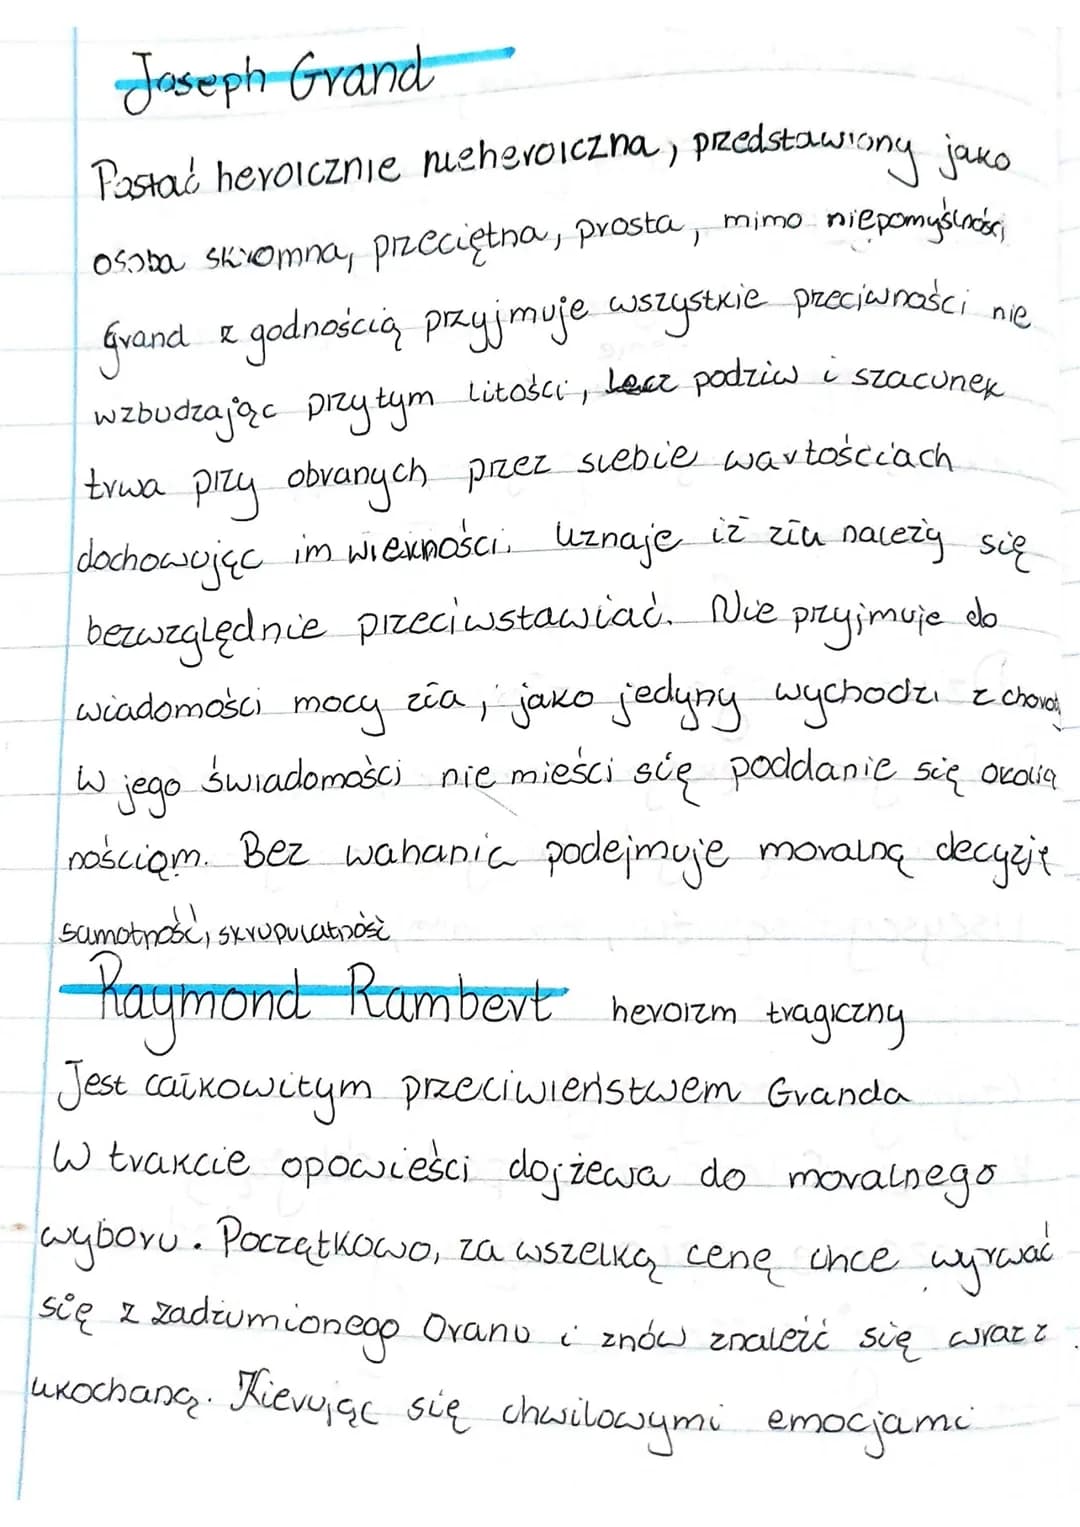 Joseph Grand
Postać heroicznie nieheroiczna, przedstawiony jako
osoba skromna, przeciętna, prosta, mimo niepomyślności
Grand z godnością przyjmuje wszystkie przeciwności nie
wzbudzając przytym litości, lecz podziw i szacunek
trwa przy obranych przez siebie wartościach
dochowując im wierności. Uznaje iż złu należy się
bezwzględnie przeciwstawiać. Nie przyjmuje do
wiadomości mocy zła, jako jedyny wychodzi z choroby
W jego świadomości nie mieści się poddanie się okolicz
nościom. Bez wahania podejmuje moralną decyzję
samotność, skrupulatność
Raymond Rambert heroizm tragiczny
Jest całkowitym przeciwieństwem Granda
W trakcie opowieści dojżewa do moralnego
wyboru. Początkowo, za wszelką cenę chce wyrwać
się z zadżumionego Oranu i znów znaleźć się wraz z
ukochaną. Kierując się chwilowymi emocjami